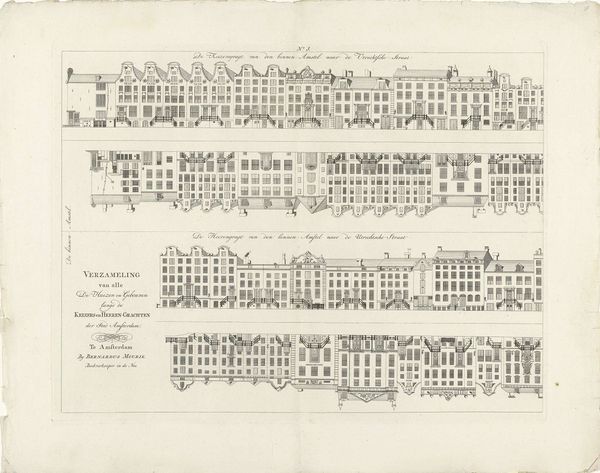 Nº. 3.
De Heerengragt van den binnen Amstel naar de Utrechtsche Straat
De Heerengragt van den binnen Amstel naar de Utrechtsche Straat
De binnen Amstel
VERZAMELING
van alle
De Huizen en Gebouwen
langs de
KEIZERS en HEEREN GRACHTEN
der Stad Amsterdam.
Te Amsterdam
By BERNARDUS MOURIK
Boekverkooper in de Nes